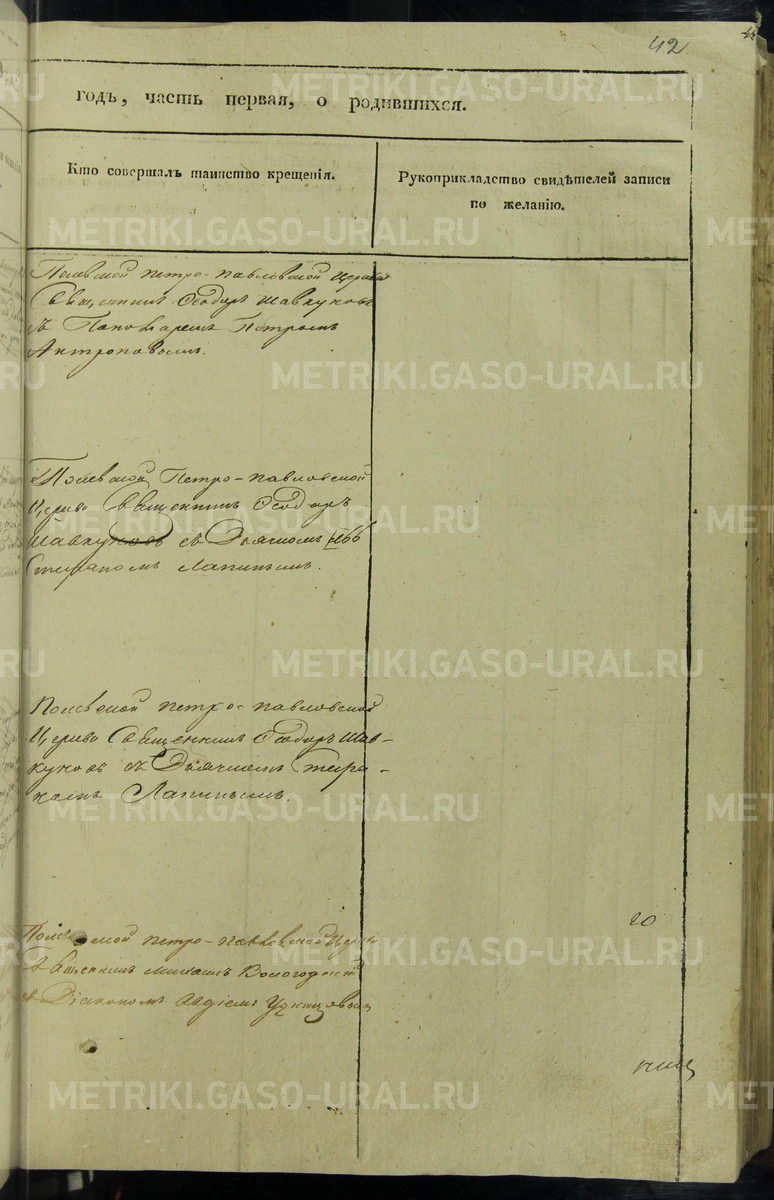 42
годъ, часть первая, о родившихся.
Кто совершалъ таинство крещенія.
Рукоприкладство свидѣтелей записи
по желанію.
Полевской Петро-Павловской Церкви
Священникъ Ѳеодоръ Шавкуновъ
съ Пономаремъ Петромъ
Антроповымъ.
Полевской Петро-Павловской
Церкви Священникъ Ѳеодоръ
Шавкуновъ съ Дьячкомъ
Лапинымъ.
Полевской Петро-Павловской
Церкви Священникъ Ѳеодоръ Шав-
куновъ съ Дьячкомъ
Лапинымъ.
20
Полевской Петро-Павловской Церкви
Священникъ Михаилъ Вологодскій
съ Діакономъ Авдіемъ
METRIKI.GASO-URAL.RU